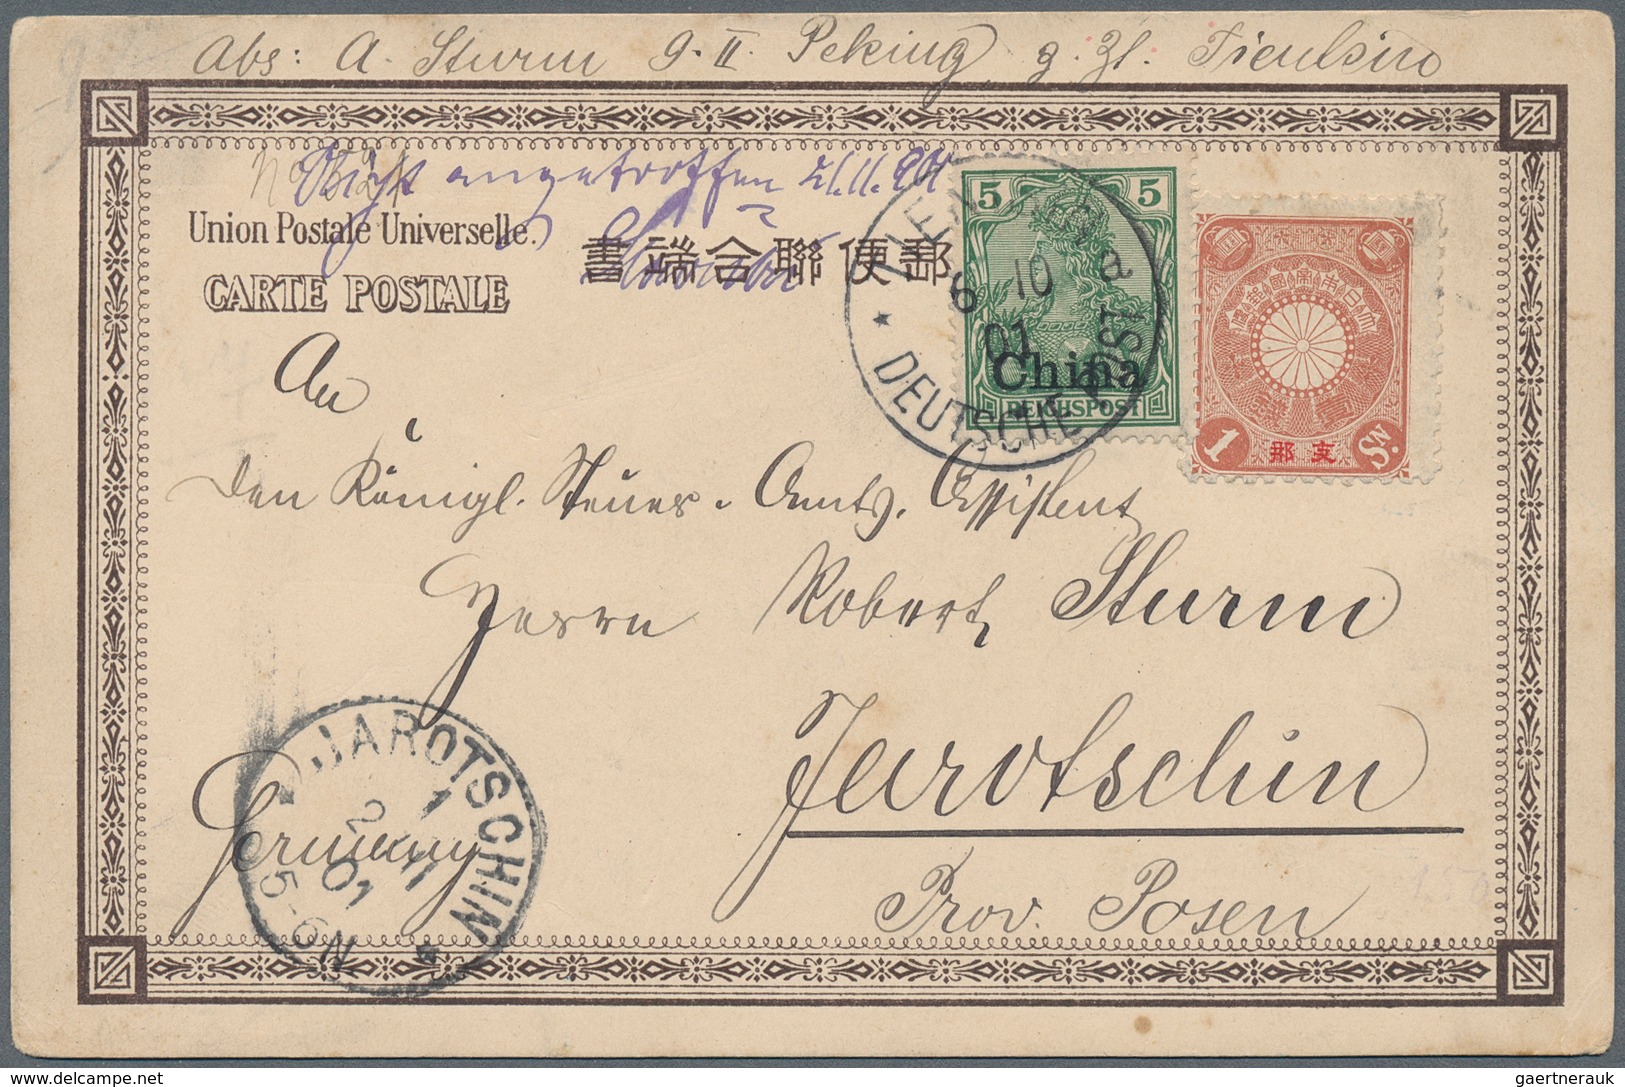 Abs: A. Sturm 9. II. Peking, z. Zt. Tientsin
Nicht angetroffen 21.11.01
Union Postale Universelle.
CARTE POSTALE
書端合聯便郵
TIENTSIN a
6 10
01
* DEUTSCHE POST
5 5
China
REICHSPOST
大日本帝國郵便
1 支那 Sn.
An
den Königl. Steuer-Amts-Assistent
Herrn Robert Sturm
Jarotschin
Germany
Prov. Posen
JAROTSCHIN *
1
2 11
01
5-6N
gaertnerauk